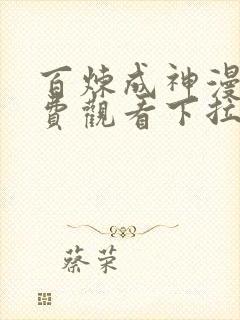 百炼成神漫
费觀看下拉
蔡荣